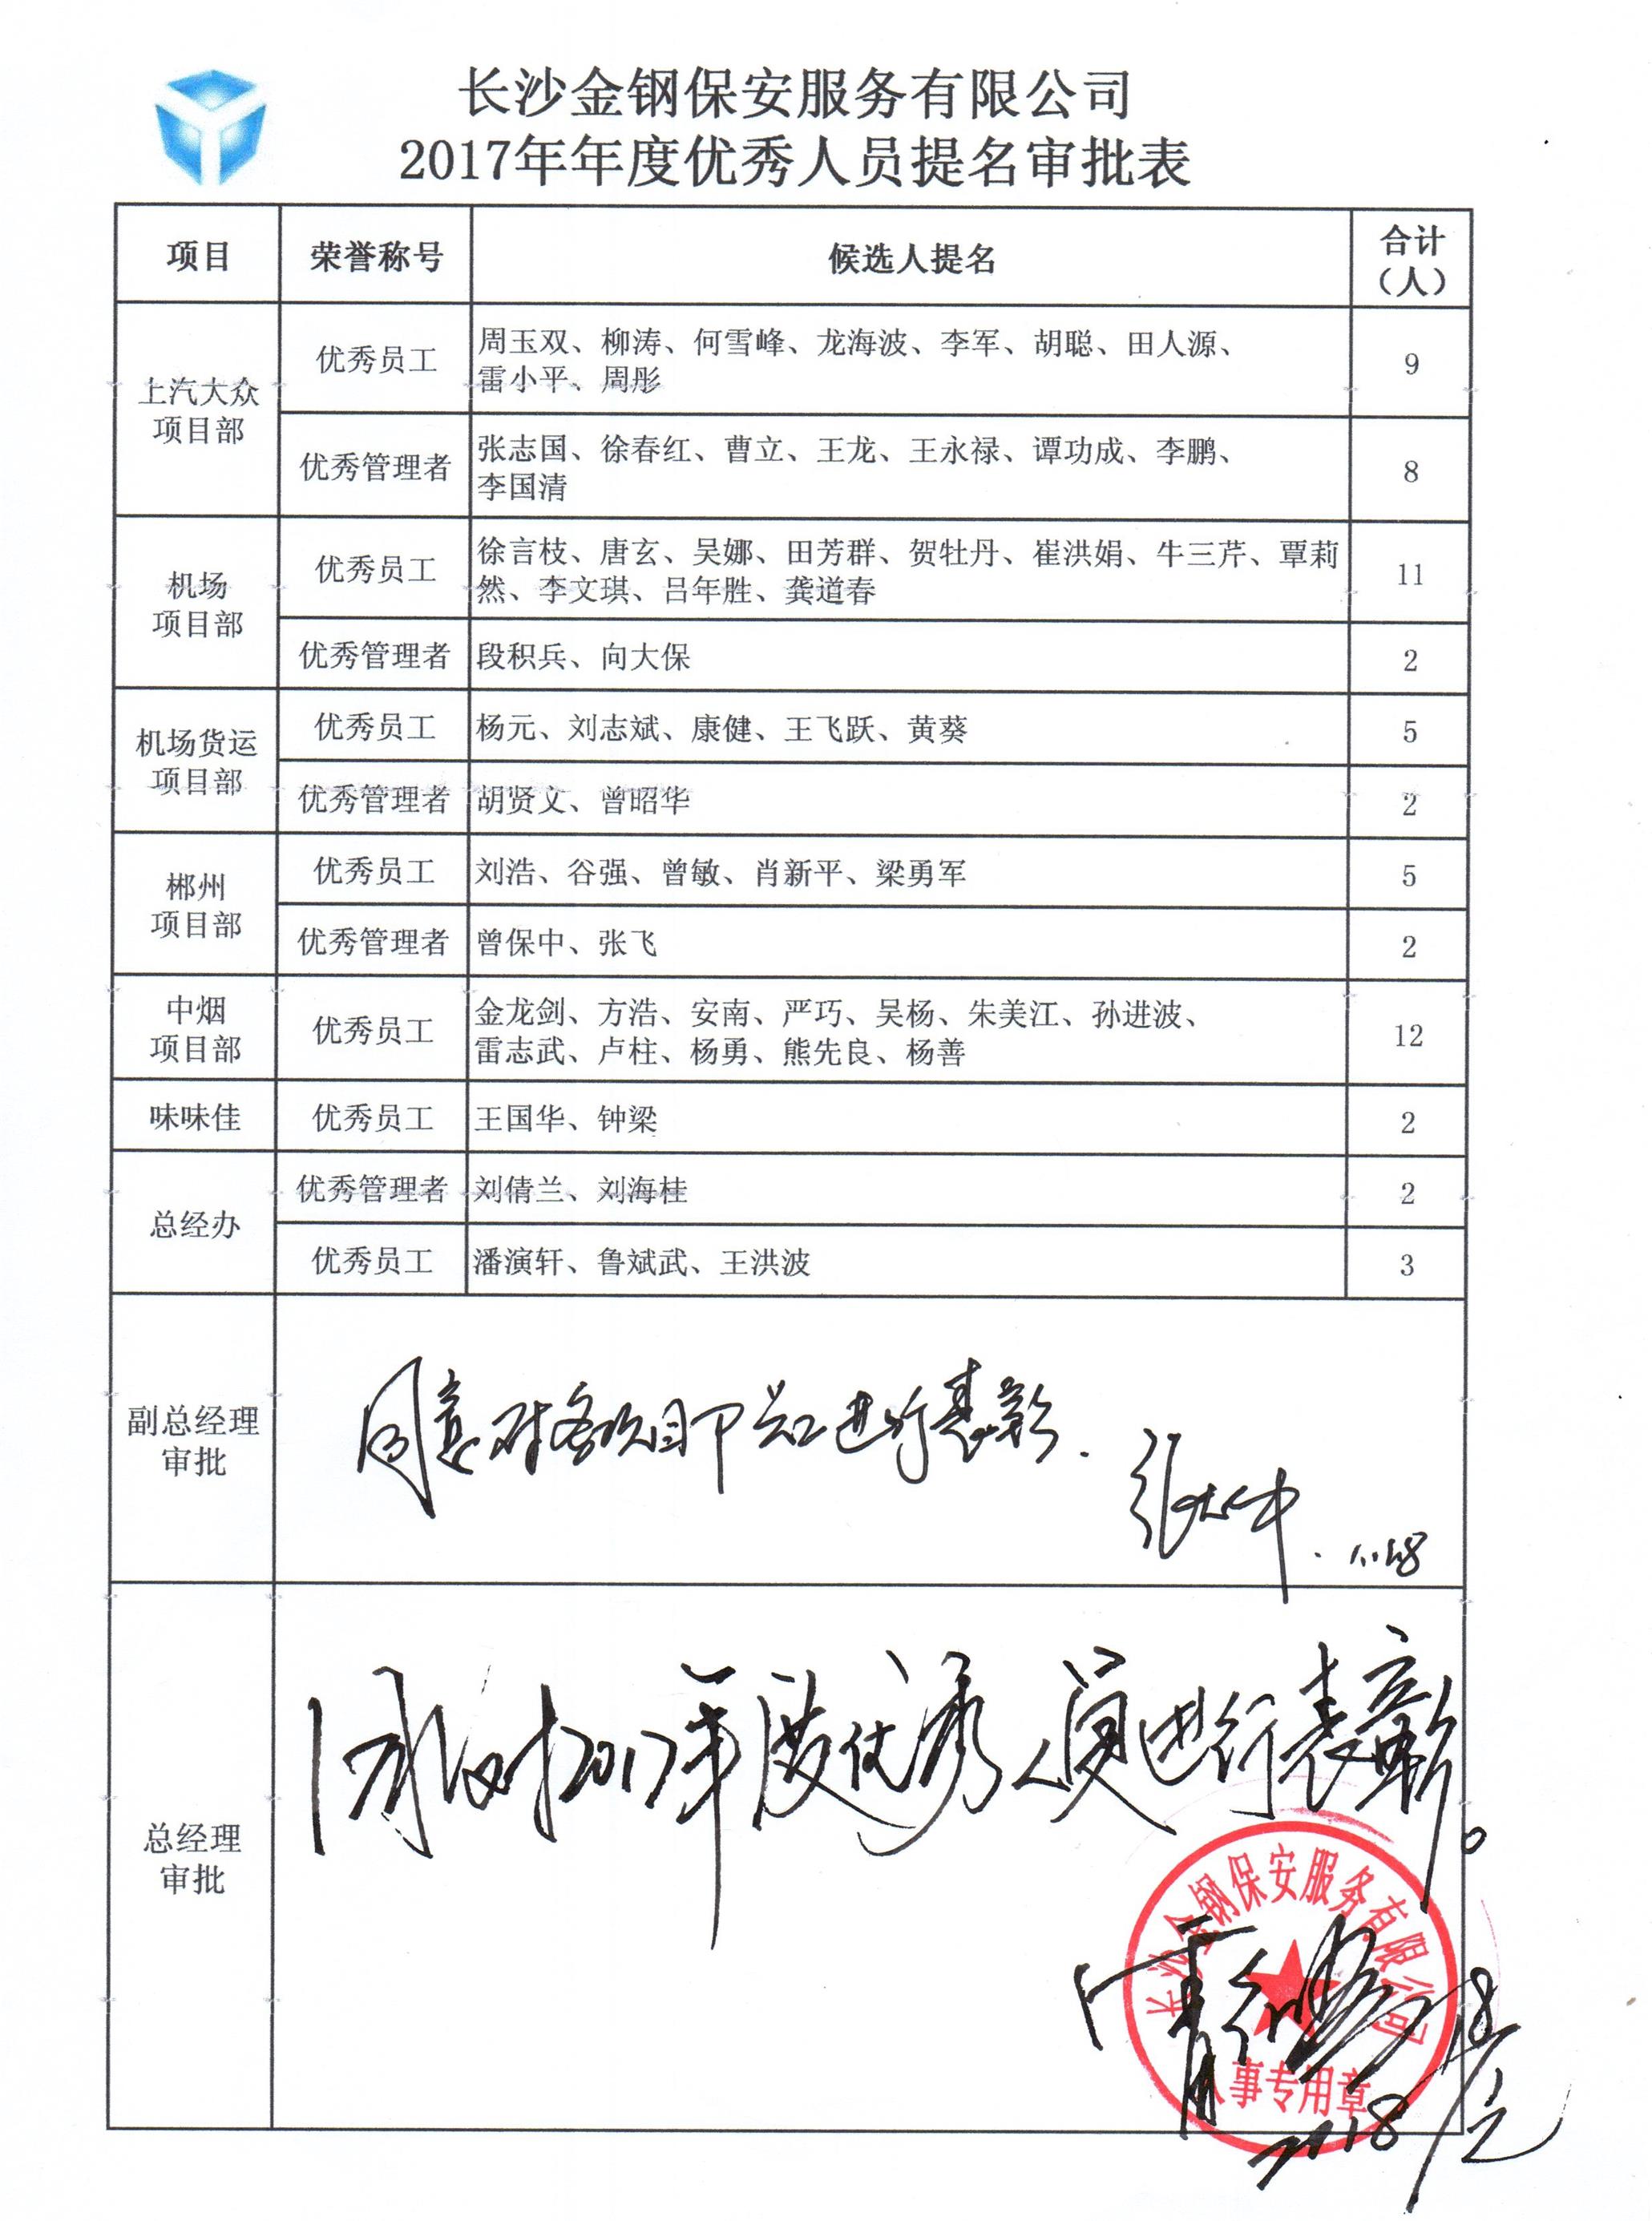 长沙金钢保安服务有限公司
2017年年度优秀人员提名审批表
项目 荣誉称号 候选人提名 合计（人）
上汽大众
项目部
优秀员工
周玉双、柳涛、何雪峰、龙海波、李军、胡聪、田人源、
雷小平、周彤
9
优秀管理者
张志国、徐春红、曹立、王龙、王永禄、谭功成、李鹏、
李国清
8
机场
项目部
优秀员工
徐言枝、唐玄、吴娜、田芳群、贺牡丹、崔洪娟、牛三芹、覃莉
然、李文琪、吕年胜、龚道春
11
优秀管理者 段积兵、向大保 2
机场货运
项目部
优秀员工 杨元、刘志斌、康健、王飞跃、黄葵 5
优秀管理者 胡贤文、曾昭华 2
郴州
项目部
优秀员工 刘浩、谷强、曾敏、肖新平、梁勇军 5
优秀管理者 曾保中、张飞 2
中烟
项目部
优秀员工
金龙剑、方浩、安南、严巧、吴杨、朱美江、孙进波、
雷志武、卢柱、杨勇、熊先良、杨善
12
味味佳 优秀员工 王国华、钟梁 2
总经办
优秀管理者 刘倩兰、刘海桂 2
优秀员工 潘演轩、鲁斌武、王洪波 3
副总经理
审批
同意对各项目部员工进行表彰.
总经理
审批
对2017年度优秀人员进行表彰。
长沙金钢保安服务有限公司
人事专用章
2018